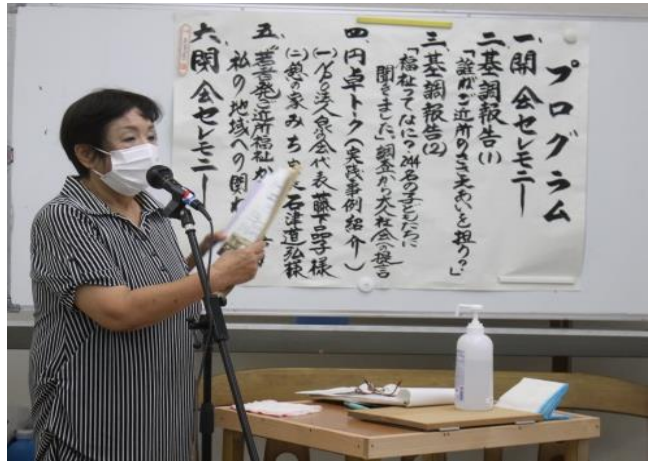 プログラム
一、開会セレモニー
二、基調報告(1)
「誰がご近所のささえあいを担う?」
三、基調報告(2)
「福祉ってなに?244名の子どもたちに
聞きました、調査から大人社会への提言
四、円卓トーク(実践事例紹介)
(一)NPO法人 代表 藤下品子様
(二)憩の家みち 石津道弘様
五、若者発ご近所福祉か
私の地域への関わ
六、閉会セレモニー